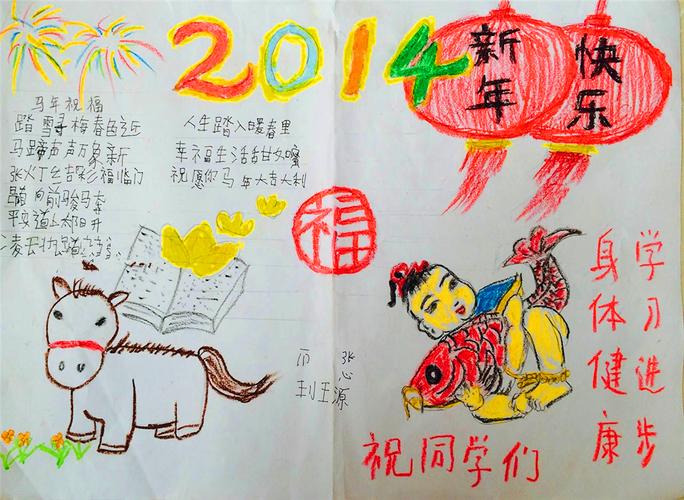 2014
新年
快乐
马年祝福
踏雪寻梅春已近
马蹄声声万象新
张灯结彩福临门
蹦向前骏马奔
平安道上太阳升
人生踏入暖春里
幸福生活甜如蜜
祝愿你马年大吉大利
福
张
心
源
祝同学们
学习进步
身体健康